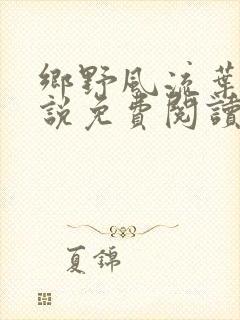 鄉野風流葉
說免費閱讀
夏錦